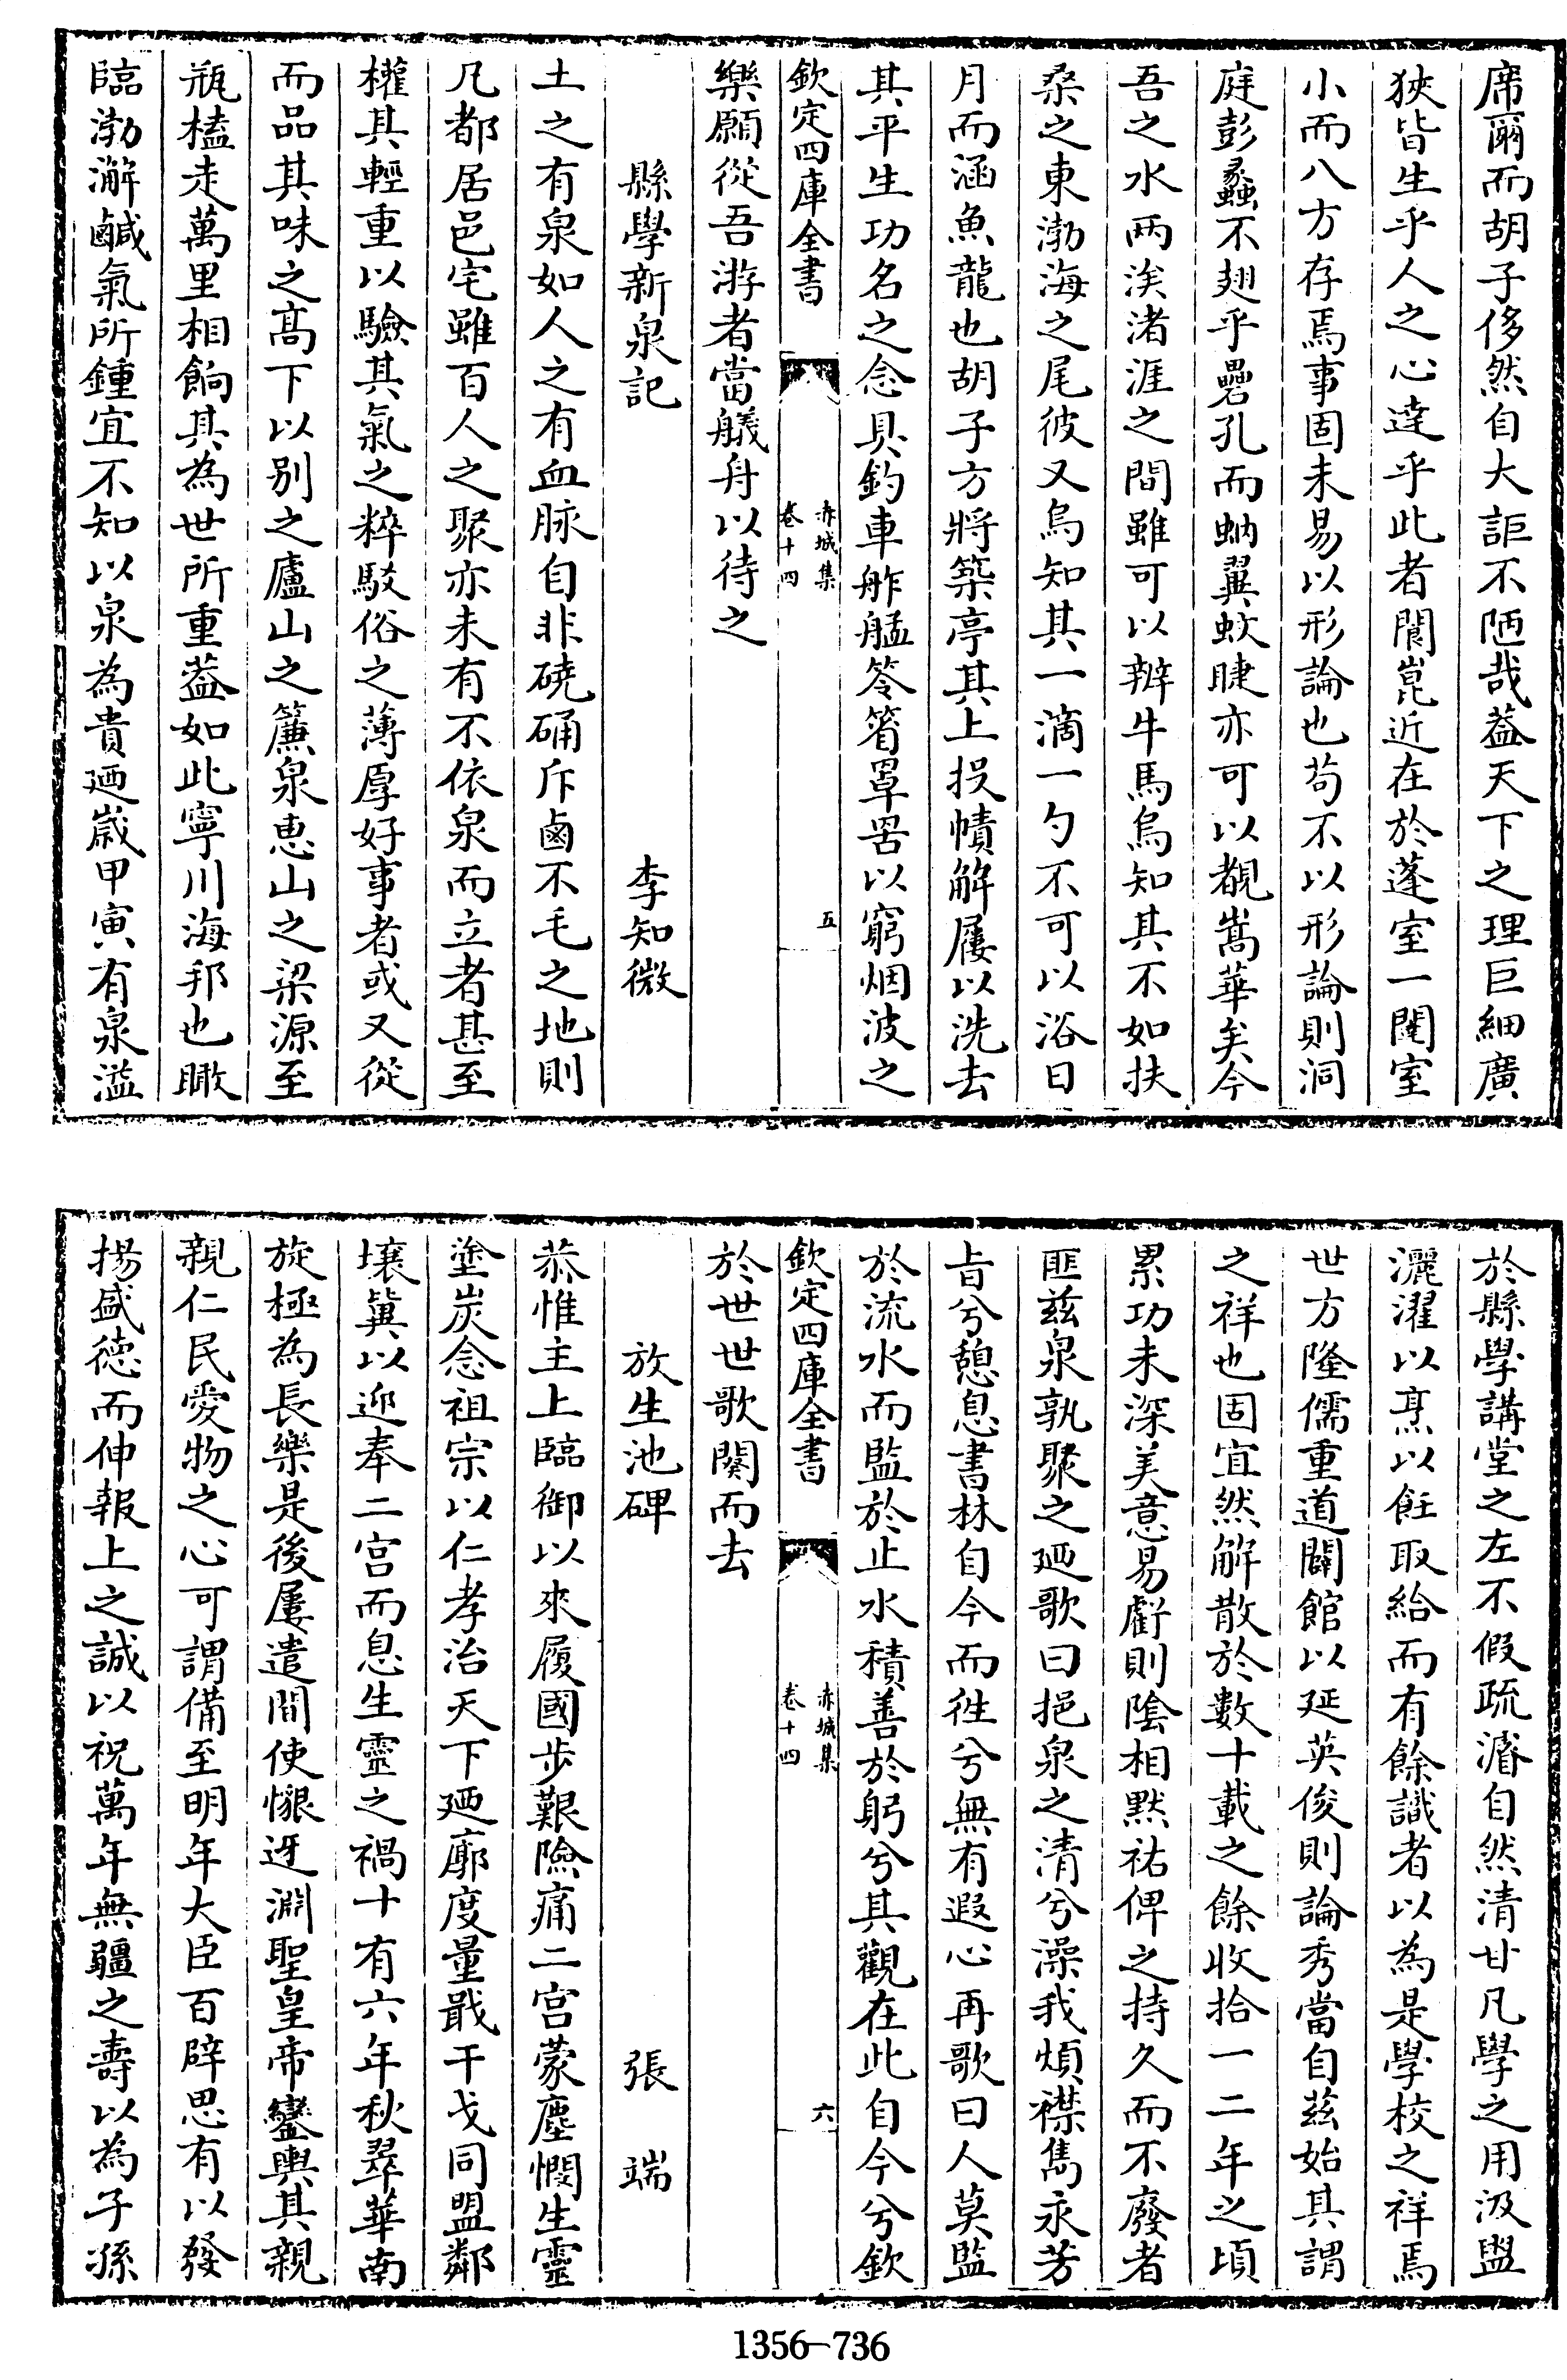 席爾而胡子侈然自大詎不陋哉葢天下之理巨細廣
狹皆生乎人之心逹乎此者閬崑近在於蓬室一闥室
小而八方存焉事固未易以形論也茍不以形論則洞
庭彭蠡不翅乎礨孔而蚋翼蚊睫亦可以覩嵩華矣今
吾之水兩涘渚涯之間雖可以辨牛馬烏知其不如扶
桑之東渤海之尾彼又烏知其一滴一勺不可以浴日
月而涵魚龍也胡子方將築亭其上投幘解屨以洗去
其平生功名之念具釣車舴艋笭箵罩罟以窮烟波之
欽定四庫全書
赤城集
卷十四
五
樂願從吾游者當艤舟以待之
縣學新泉記
李知微
土之有泉如人之有血脉自非磽确斥鹵不毛之地則
凡都居邑宅雖百人之聚亦未有不依泉而立者甚至
權其輕重以驗其氣之粹駁俗之薄厚好事者或又從
而品其味之髙下以别之廬山之簾泉惠山之梁源至
瓶榼走萬里相餉其為世所重葢如此寧川海邦也瞰
臨渤澥鹹氣所鍾宜不知以泉為貴廼嵗甲寅有泉溢
於縣學講堂之左不假疏濬自然清甘凡學之用汲盥
灑濯以烹以飪取給而有餘識者以為是學校之祥焉
世方隆儒重道闢館以延英俊則論秀當自茲始其謂
之祥也固宜然解散於數十載之餘收拾一二年之頃
累功未深美意易虧則陰相黙祐俾之持久而不廢者
匪茲泉孰聚之廼歌曰挹泉之清兮澡我煩襟雋永芳
㫖兮憩息書林自今而徃兮無有遐心再歌曰人莫監
於流水而監於止水積善於躬兮其觀在此自今兮欽
欽定四庫全書
赤城集
卷十四
六
於世世歌闋而去
放生池碑
張端
恭惟主上臨御以來履國步艱險痛二宫蒙塵憫生靈
塗炭念祖宗以仁孝治天下廼廓度量戢干戈同盟鄰
壤冀以迎奉二宫而息生靈之禍十有六年秋翠華南
旋極為長樂是後屢遣間使懇迓淵聖皇帝鑾輿其親
親仁民愛物之心可謂備至明年大臣百辟思有以發
揚盛徳而伸報上之誠以祝萬年無疆之壽以為子孫
1356—736